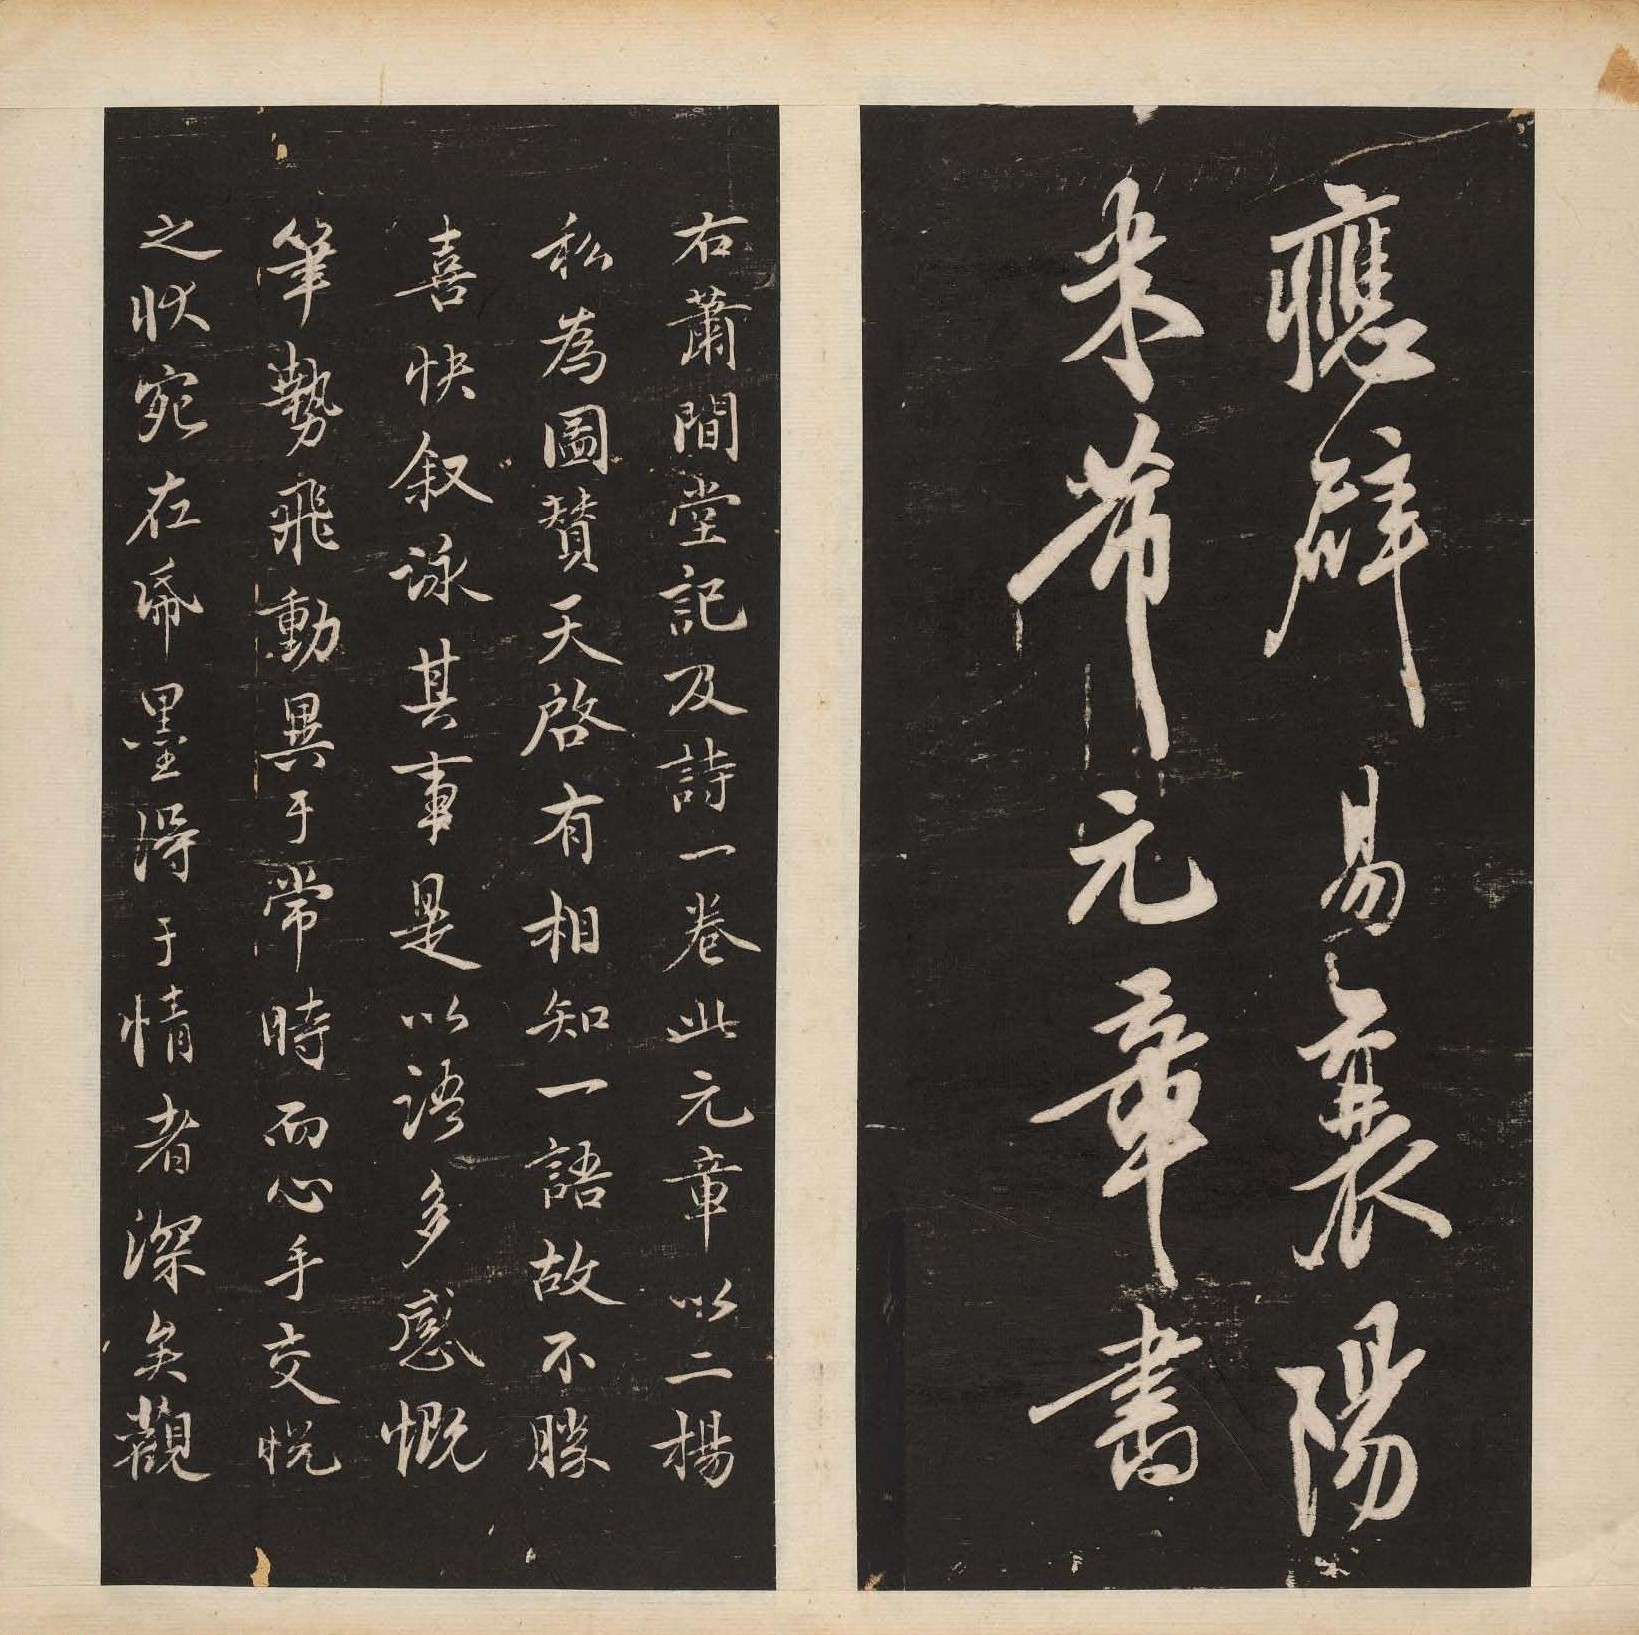 應辟易襄陽
米芾元章書
右蕭閒堂記及詩一卷此元章以二楊
私為圖贊天啓有相知一語故不勝
喜快叙詠其事是以語多感慨
筆勢飛動異于常時而心手交悦
之狀宛在帋墨得于情者深矣觀